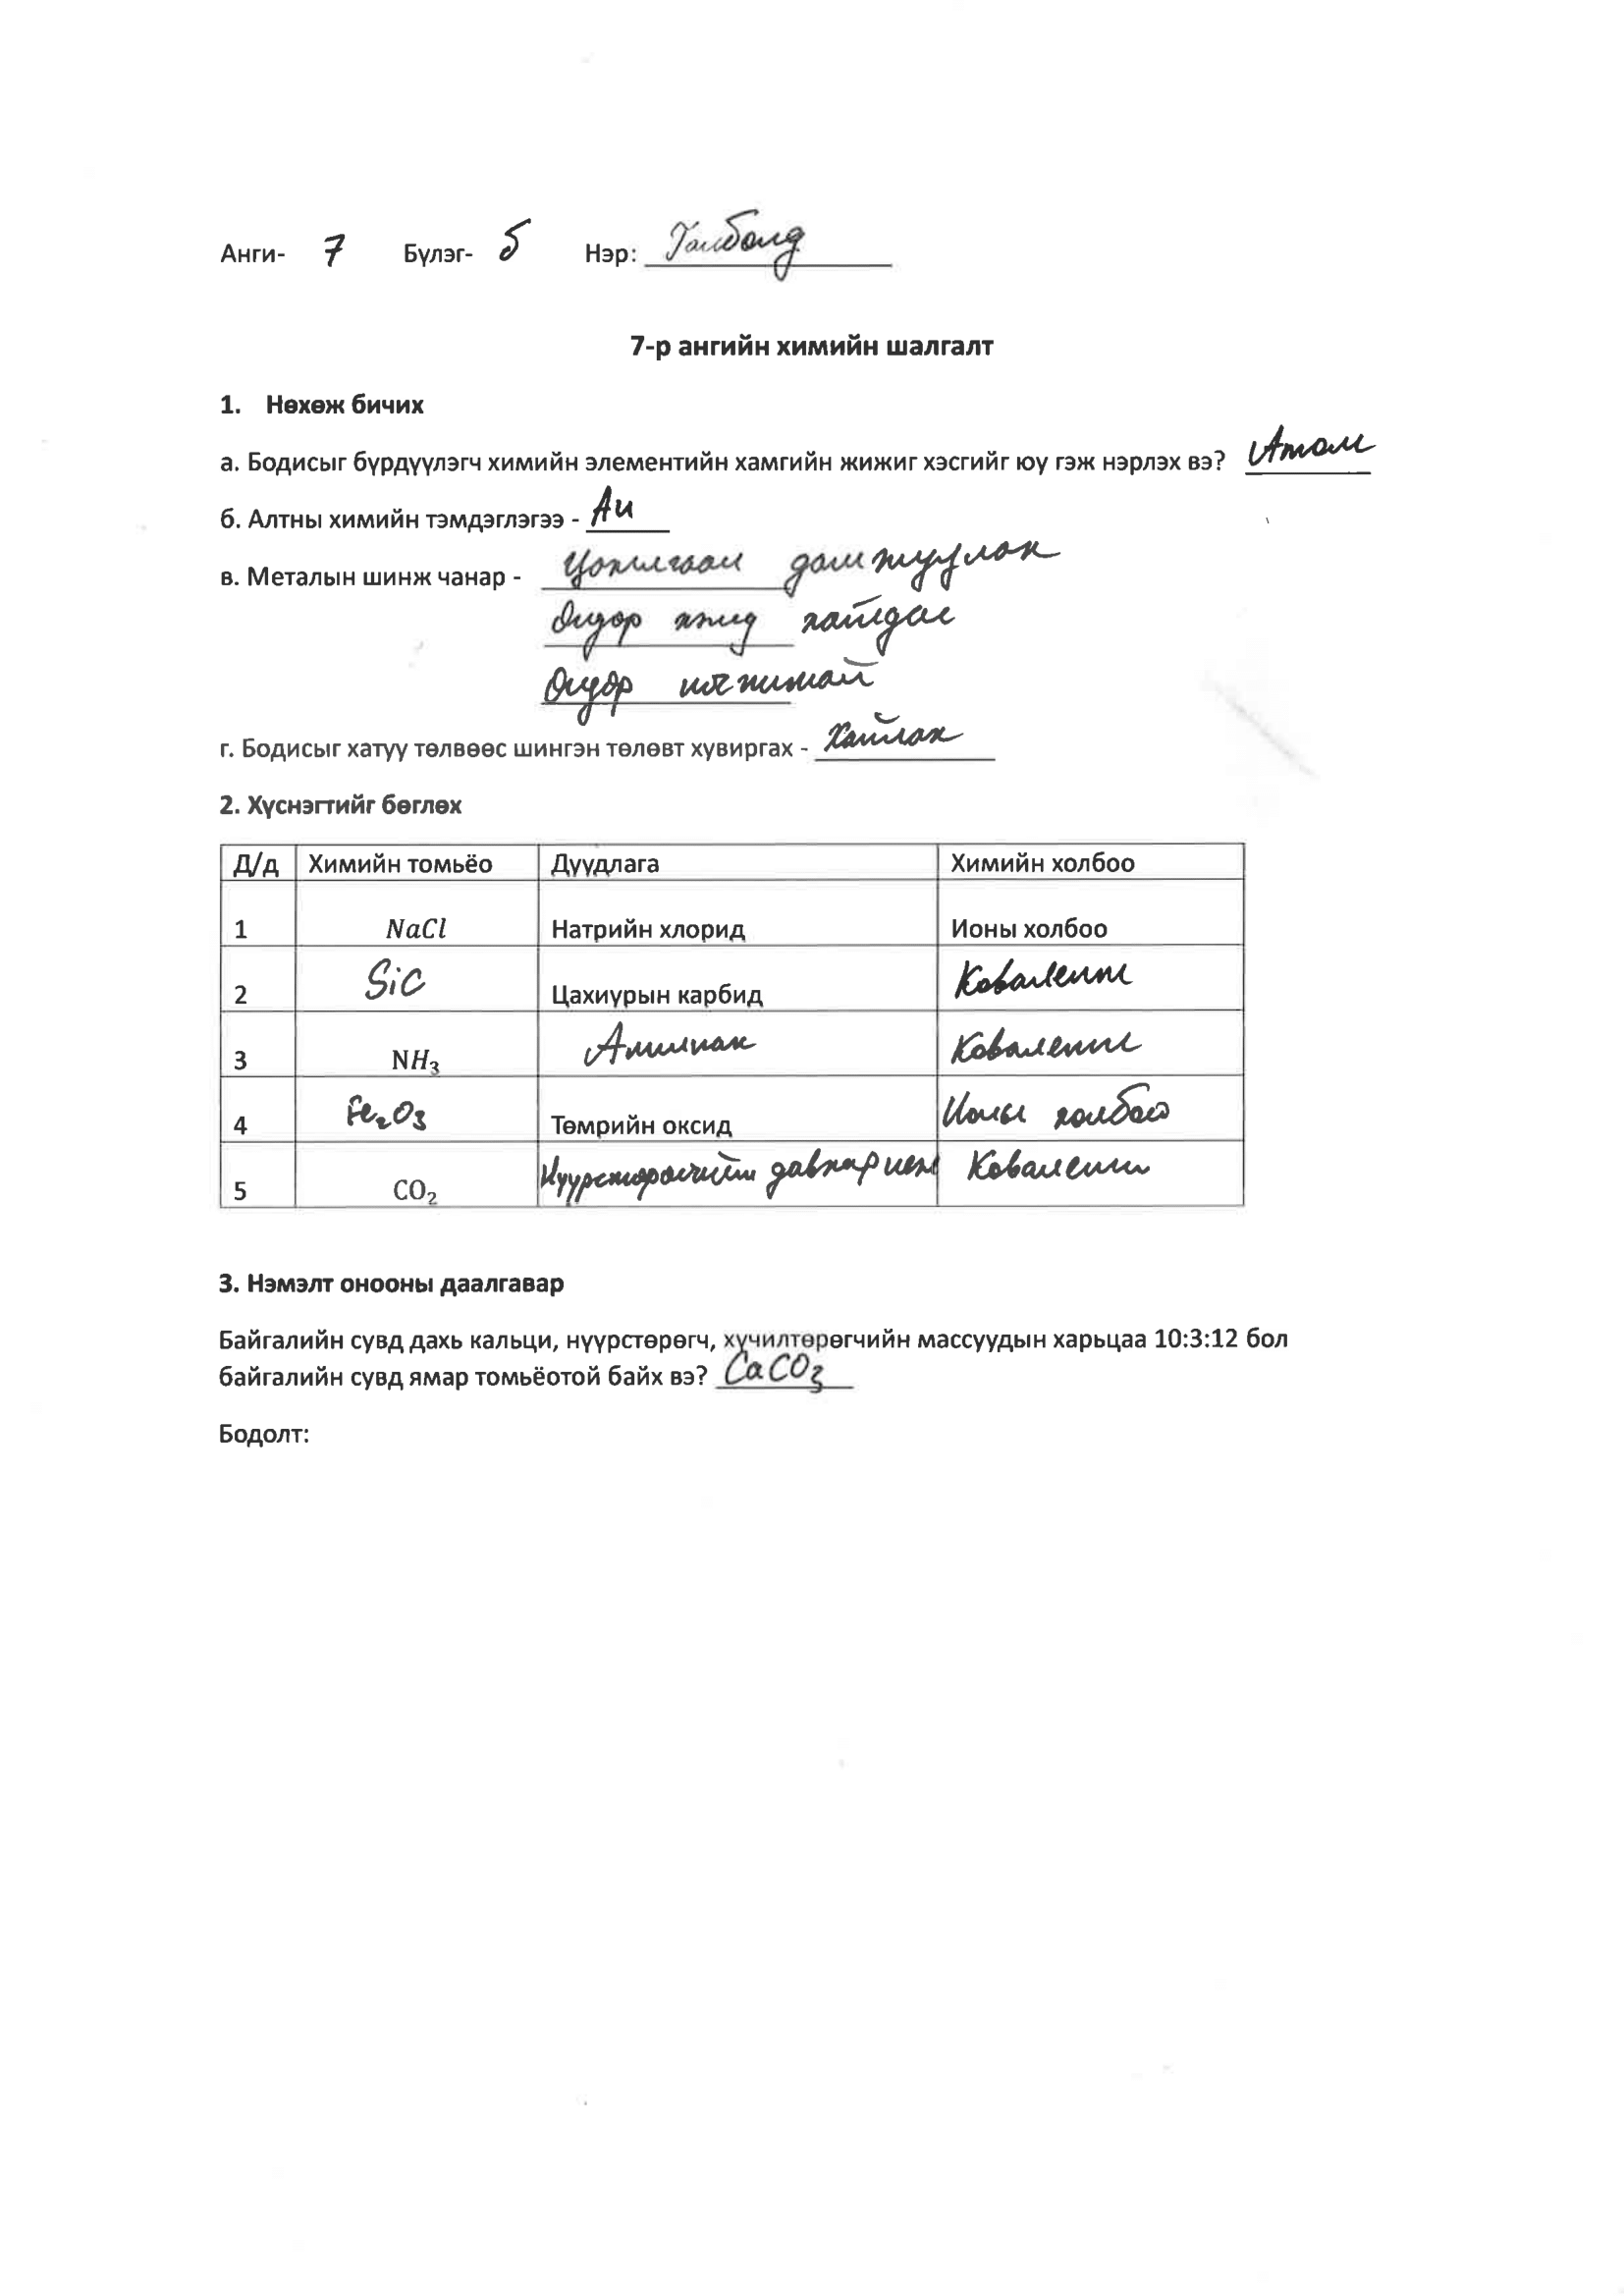 Анги- 7 Бүлэг- б Нэр: Ганболд
7-р ангийн химийн шалгалт
1. Нөхөж бичих
а. Бодисыг бүрдүүлэгч химийн элементийн хамгийн жижиг хэсгийг юу гэж нэрлэх вэ? Атом
б. Алтны химийн тэмдэглэгээ - Au
в. Металын шинж чанар - Цахилгаан дамжуулах
Өндөр хэмд хайлдаг
Өндөр нягттай
г. Бодисыг хатуу төлвөөс шингэн төлөвт хувиргах - Хайлах
2. Хүснэгтийг бөглөх
Д/д Химийн томьёо Дуудлага Химийн холбоо
1 NaCl Натрийн хлорид Ионы холбоо
2 SiC Цахиурын карбид Ковалент
3 NH₃ Аммиак Ковалент
4 Fe₂O₃ Төмрийн оксид Ионы холбоо
5 CO₂ Нүүрстөрөгчийн давхар исэл Ковалент
3. Нэмэлт онооны даалгавар
Байгалийн сувд дахь кальци, нүүрстөрөгч, хүчилтөрөгчийн массуудын харьцаа 10:3:12 бол
байгалийн сувд ямар томьёотой байх вэ? CaCO₃
Бодолт: